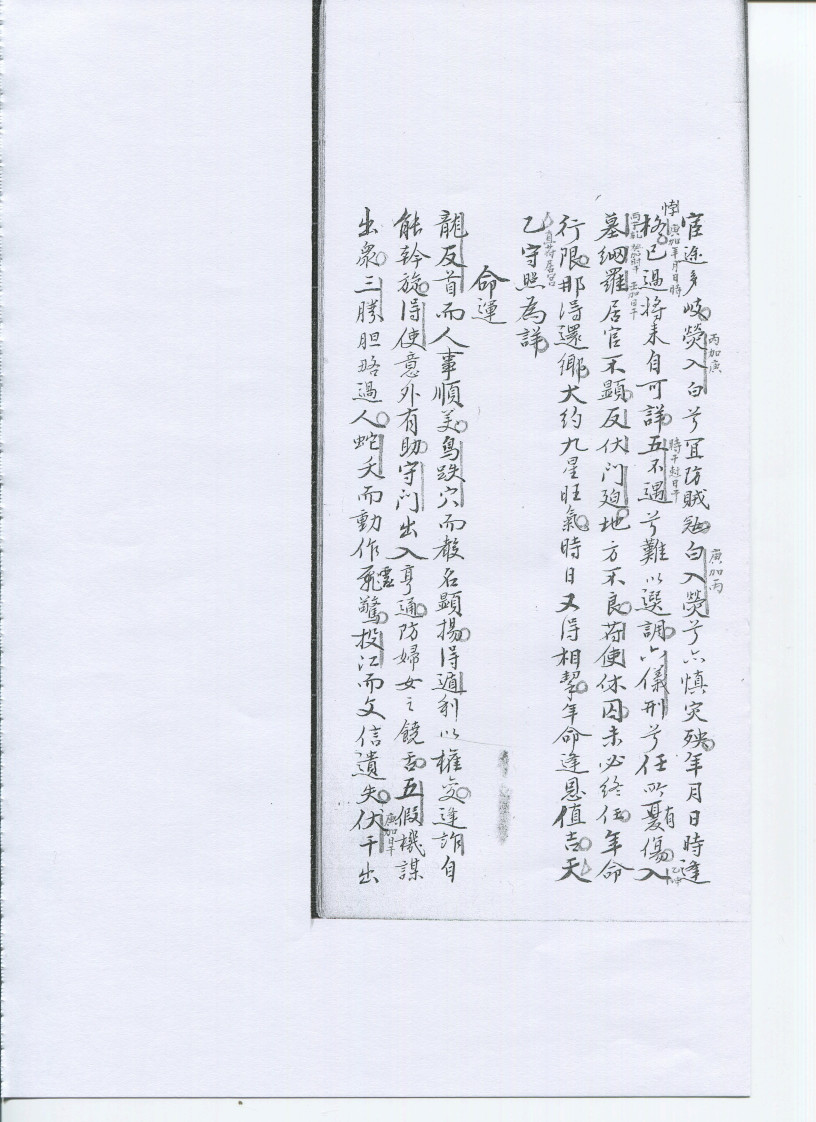 宦途多岐熒入白兮宜防賊白入熒兮亦慎灾殃年月日時逢
丙加庚
庚加丙
悖格已過將来自可詳五不遇兮難以選調六儀刑兮任所有憂傷入
庚加年月日時
時干尅日干
墓網羅居官不顯反伏門廹地方不良符使休囚未必終任年命
行限那得還鄉大約九星旺氣時日又得相挈年命逢恩值吉天
乙守照為詳
直符居宮
命運
龍反首而人事順美鳥跌穴而教名顯揚得遁利以權交逢詐自
能幹旋得使意外有助守门出入亨通防婦女之饒舌五假機謀
出衆三勝胆略過人蛇夭而動作虛驚投江而文信遺失伏干出
庚加日干